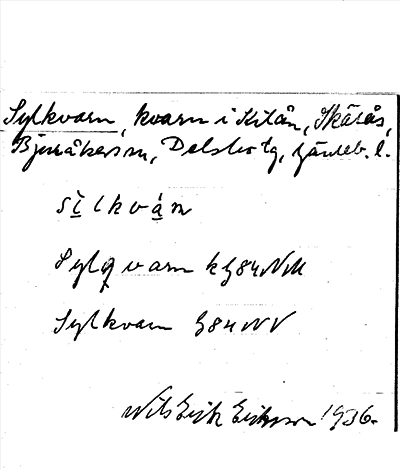 Sylkvarn, kvarn i Kitån, Skärås,
Bjuråkers sn, Delsbo tg, Gävleb. l.
sìlkvàn
Sylqvarn k G84NM
Sylkvarn G84NV
Nils Erik Eriksson 1936.